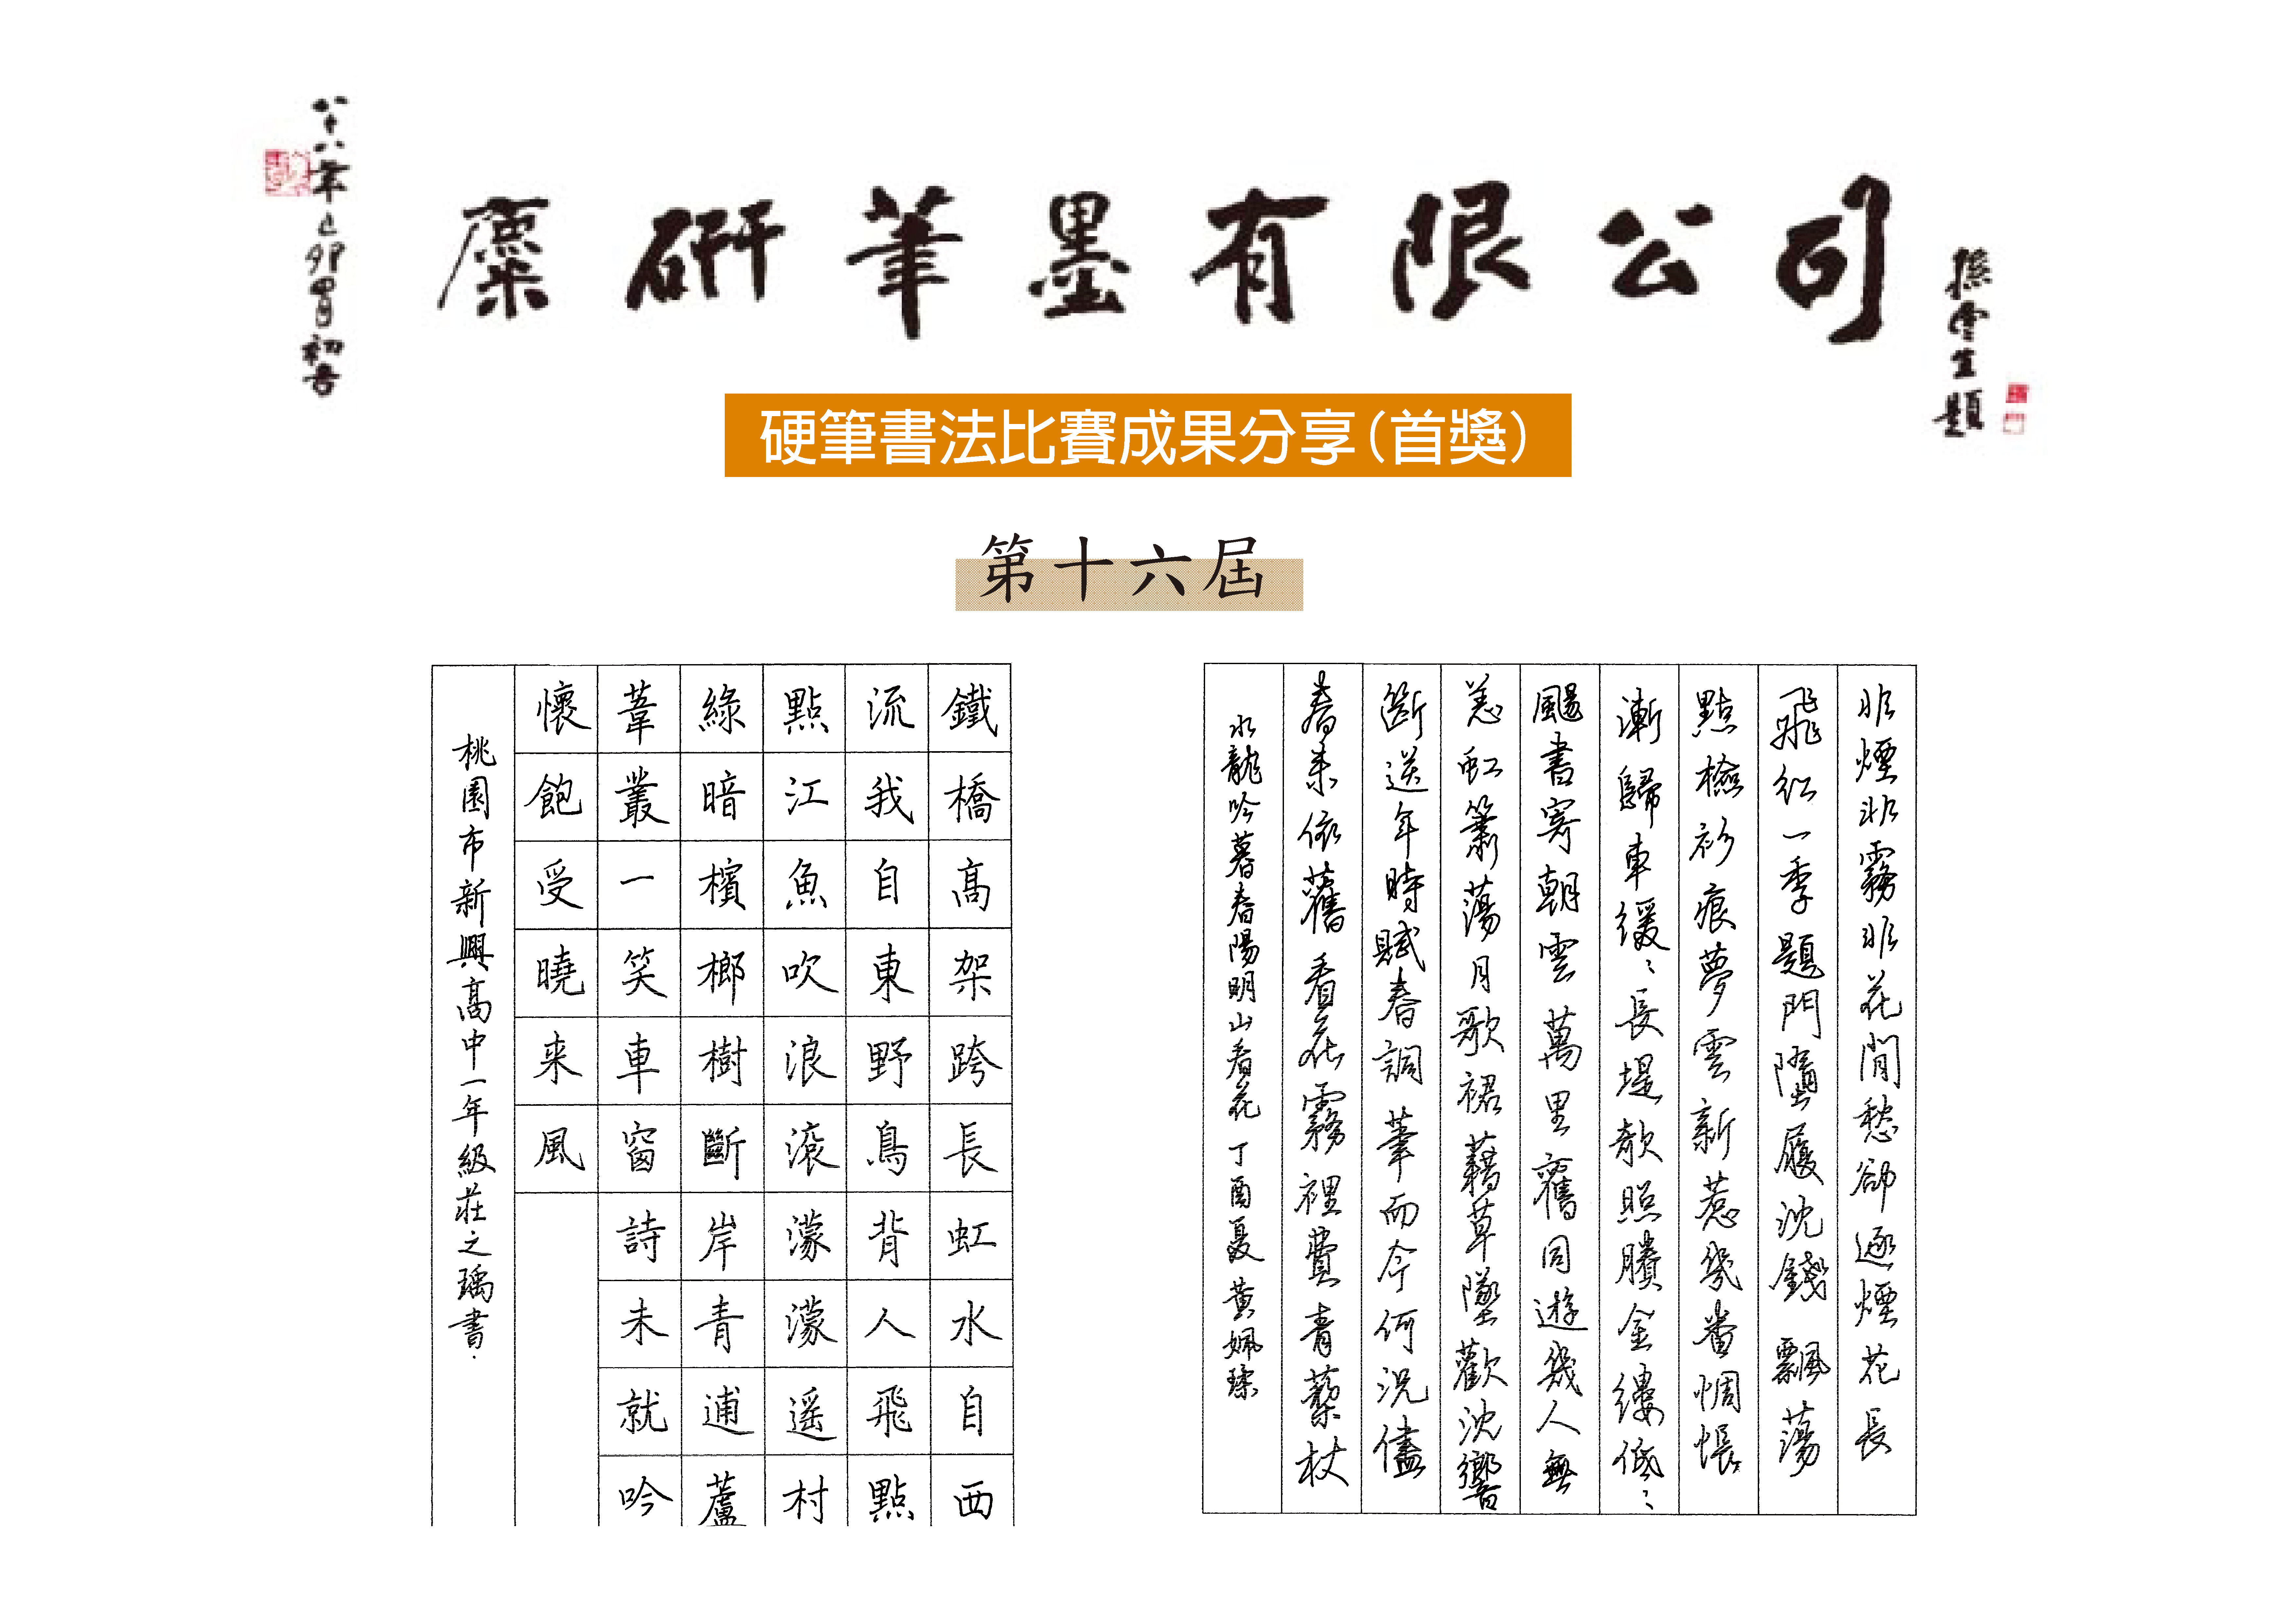 麋研筆墨有限公司
硬筆書法比賽成果分享(首獎)
第十六屆
非煙非霧非花閒愁卻逐煙花長
飛紅一季題門墮屐沈錢飄蕩
點檢衫痕夢雲新惹幾番惆悵
漸歸車緩〻長堤欹照賸金縷低〻
颺書寄朝雲萬里舊同遊幾人無
恙虹簫蕩月歌裙藉草墜歡沈響
斷送年時賦春詞筆而今何況儘
春來依舊看花霧裡費青藜杖
水龍吟暮春陽明山看花 丁酉夏 黃姵瑧
鐵橋高架跨長虹水自西
流我自東野鳥背人飛點
點江魚吹浪滾濛濛遥村
綠暗檳榔樹斷岸青逋蘆
葦叢一笑車窗詩未就吟
懷飽受曉来風
桃園市新興高中一年級莊之瑀書.